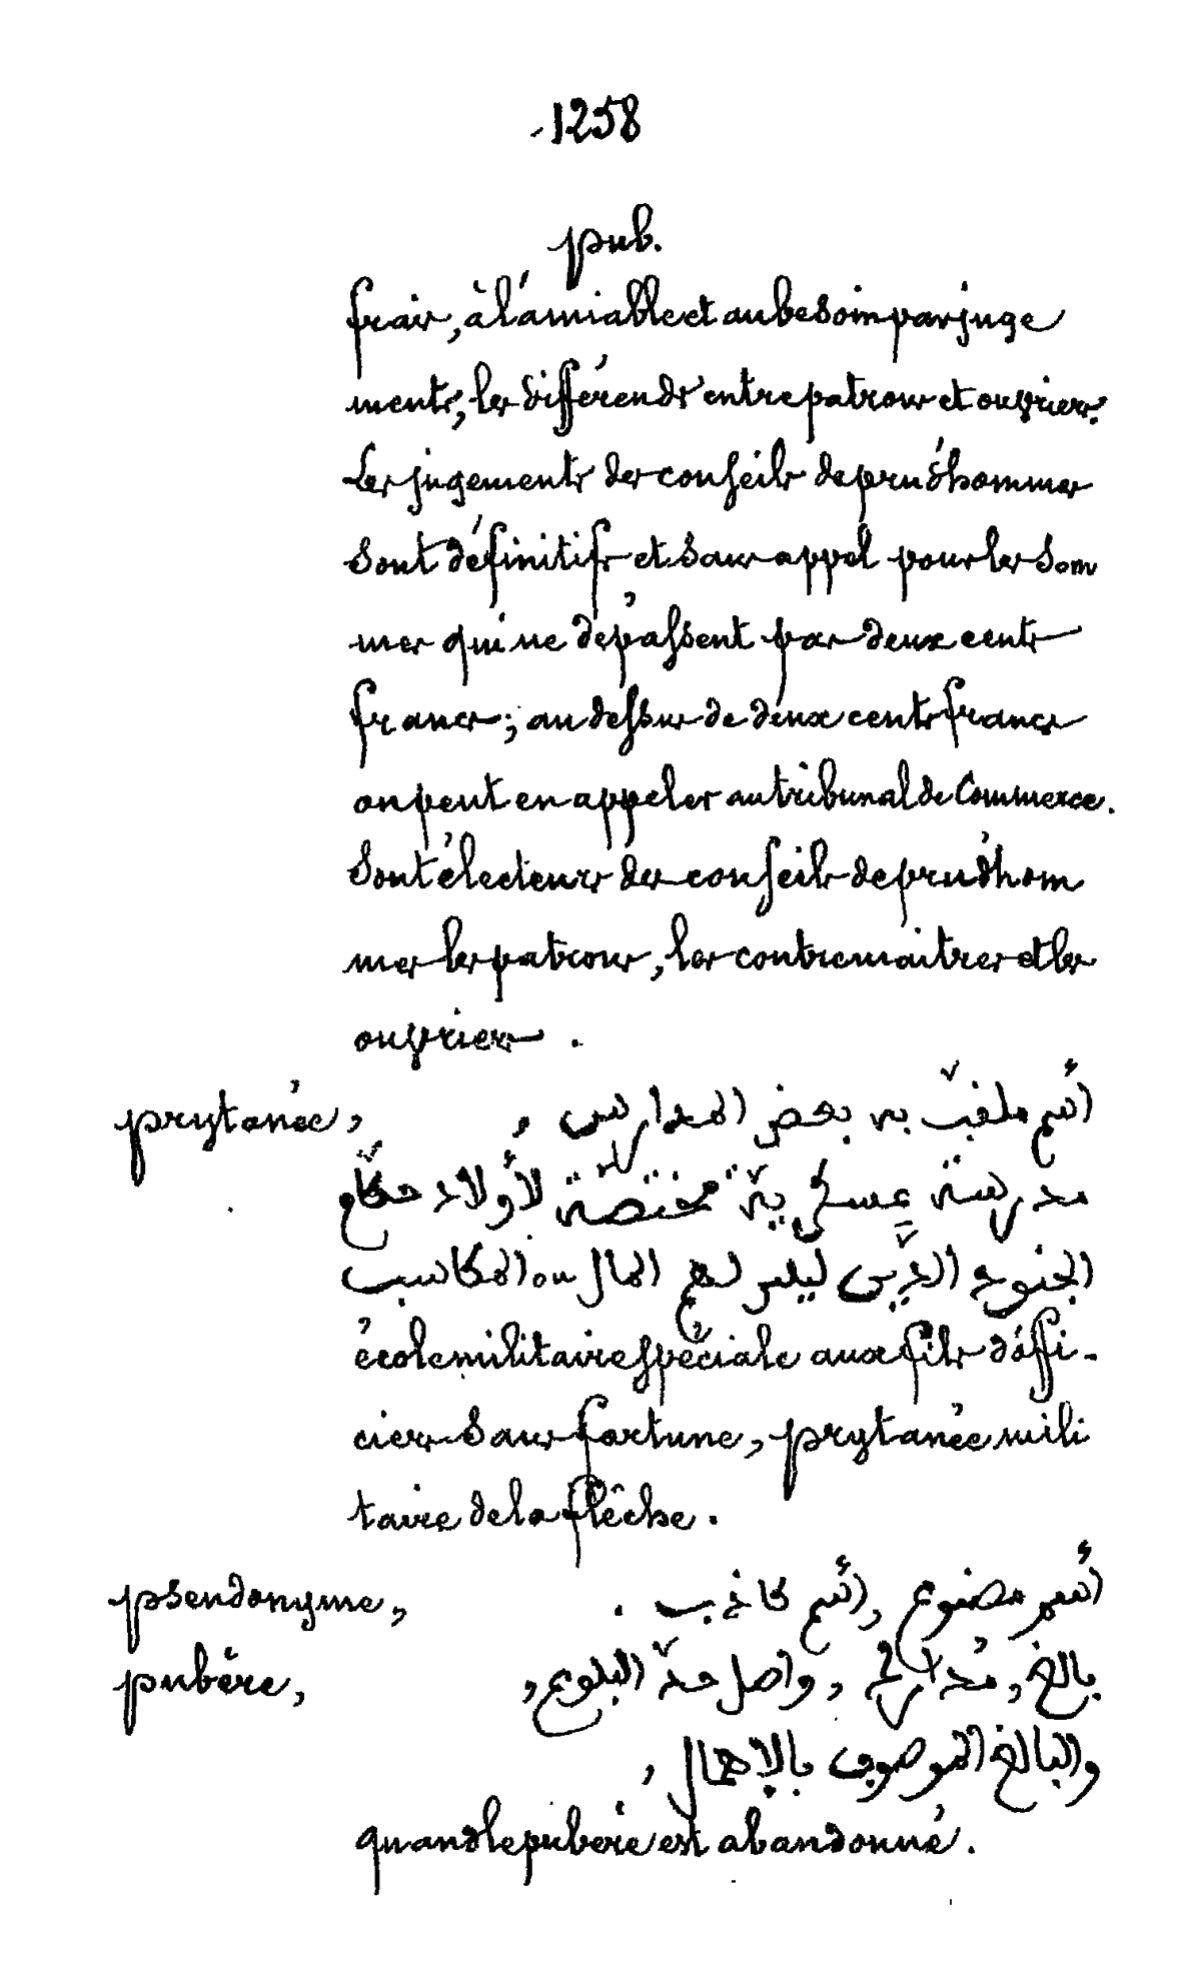 1258
pub.
frais, à l'amiable et au besoin par juge
ments, les différends entre patrons et ouvriers.
Les jugements des conseils de prud'hommes
sont définitifs et sans appel pour les som
mes qui ne dépassent pas deux cents
francs; au dessus de deux cents francs
on peut en appeler au tribunal de Commerce.
Sont électeurs des conseils de prud'hom
mes les patrons, les contremaitres et les
ouvriers.
prytanée, اسْم ملقّب به بعض المدارس,
مدرسة عسكريّة مختصّة لأولاد حكّام
الجنود الذّين ليس لهم المال ou المكاسب
école militaire spéciale aux fils d'offi-
ciers sans fortune, prytanée mili
taire de la flêche.
pseudonyme, اسْم مصنوع, اسْم كاذب.
pubère, بالغ, مُدارك, واصل حدّ البلوغ,
والبالغ الموصوف بالإهمال,
quand le pubère est abandonné.